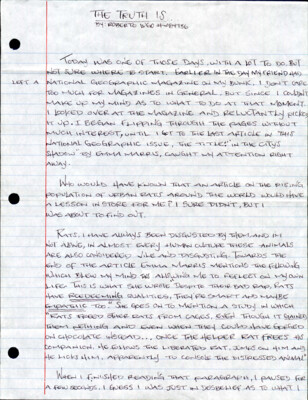 THE TRUTH IS
BY ROBERTO
TODAY WAS ONE OF THOSE DAYS, WITH A LOT TO DO. BUT
NOT SURE WHERE TO START. EARLIER IN THE DAY MY FRIEND HAD
LEFT A NATIONAL GEOGRAPHIC MAGAZINE ON MY BUNK. I DON'T CARE
TOO MUCH FOR MAGAZINES IN GENERAL. BUT SINCE I COULDN'T
MAKE UP MY MIND AS TO WHAT TO DO AT THAT MOMENT.
I LOOKED OVER AT THE MAGAZINE AND RELUCTANTLY PICKED
IT UP. I BEGAN FLIPPING THROUGH THE PAGES WITHOUT
MUCH INTEREST, UNTIL I GOT TO THE LAST ARTICLE IN THIS
NATIONAL GEOGRAPHIC ISSUE, THE TITLE: "IN THE CITY'S
SHADOW" BY EMMA MARRIS, CAUGHT MY ATTENTION RIGHT
AWAY.
WHO WOULD HAVE KNOWN THAT AN ARTICLE ON THE RISING
POPULATION OF URBAN RATS AROUND THE WORLD WOULD HAVE
A LESSON IN STORE FOR ME? I SURE DIDN'T, BUT I
WAS ABOUT TO FIND OUT.
RATS, I HAVE ALWAYS BEEN DISGUSTED BY THEM AND I'M
NOT ALONE, IN ALMOST EVERY HUMAN CULTURE THESE ANIMALS
ARE ALSO CONSIDERED VILE AND DISGUSTING. TOWARDS THE
END OF THE ARTICLE EMMA MARRIS MENTIONS THE FOLLOWING
WHICH BLEW MY MIND BY MAKING ME TO REFLECT ON MY OWN
LIFE. THIS IS WHAT SHE WROTE: DESPITE THEIR BAD RAP, RATS
HAVE REDEEMING QUALITIES, THEY'RE SMART AND MAYBE
EMPATHIC TOO." SHE GOES ON TO MENTION A STUDY IN WHICH
"RATS FREED OTHER RATS FROM CAGES, EVEN THOUGH IT GAINED
THEM NOTHING AND EVEN WHEN THEY COULD HAVE GORGED
ON CHOCOLATE INSTEAD..., ONCE THE HELPER RAT FREES HIS
COMPANION. HE FOLLOWS THE LIBERATED RAT, JUMPS ON HIM AND
HE LICKS HIM, APPARENTLY TO CONSOLE THE DISTRESSED ANIMAL."
WHEN I FINISHED READING THAT PARAGRAPH, I PAUSED FOR
A FEW SECONDS. I GUESS I WAS JUST IN DISBELIEF AS TO WHAT I